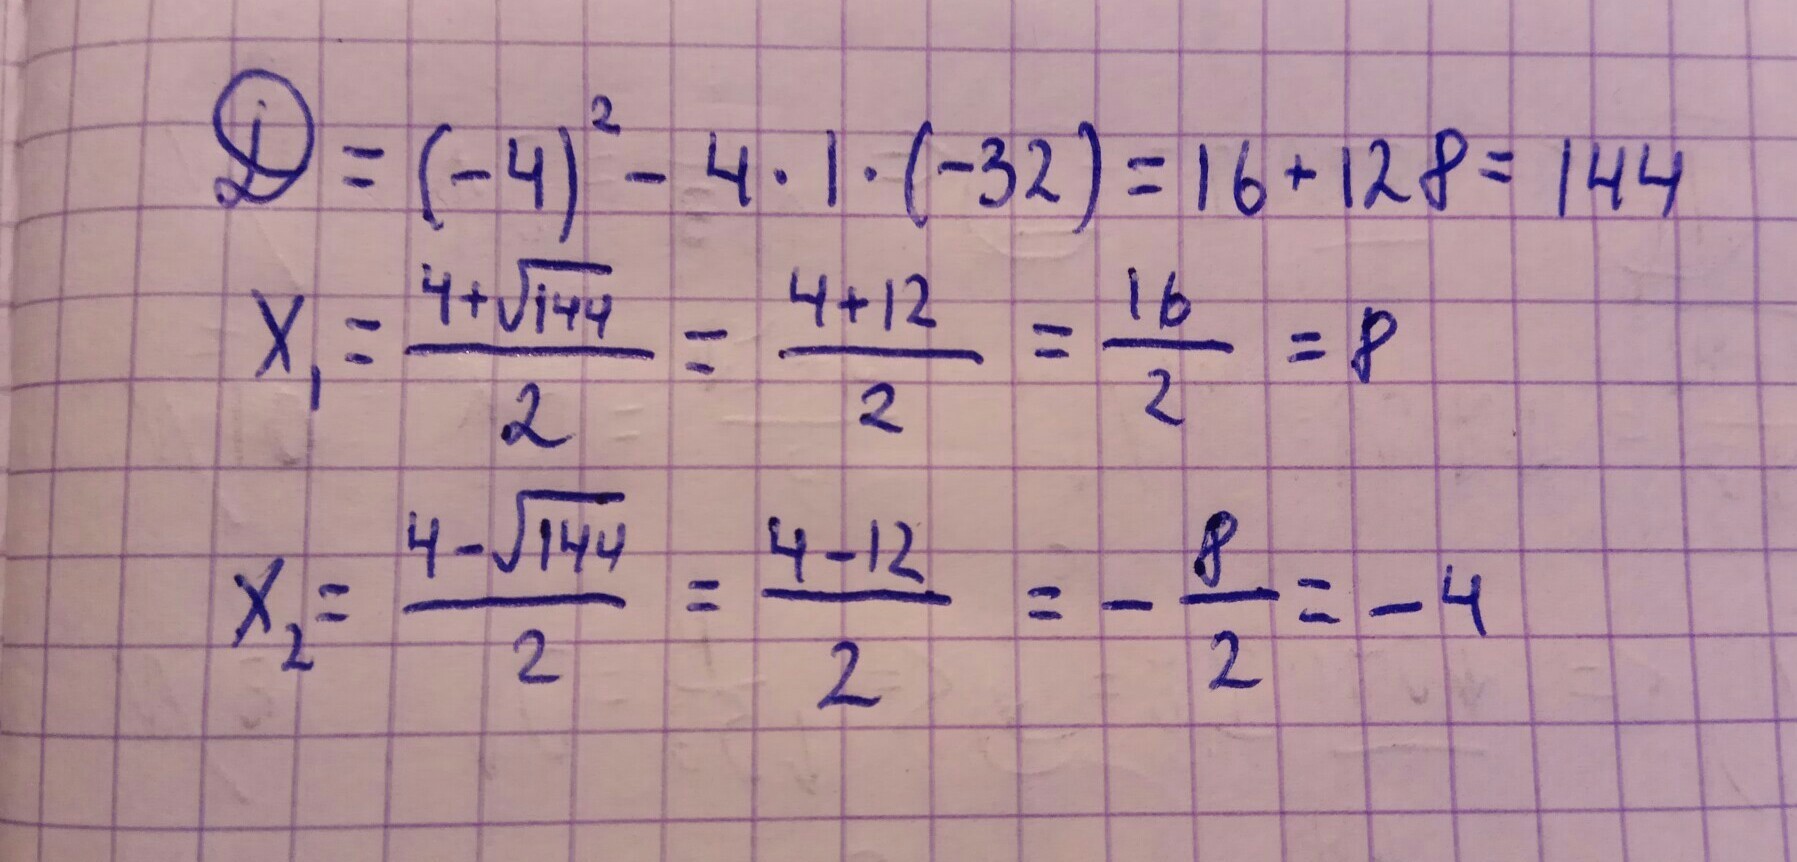 D = (-4)² - 4 · 1 · (-32) = 16 + 128 = 144
X₁ = (4+√144)/2 = (4+12)/2 = 16/2 = 8
X₂ = (4-√144)/2 = (4-12)/2 = -8/2 = -4